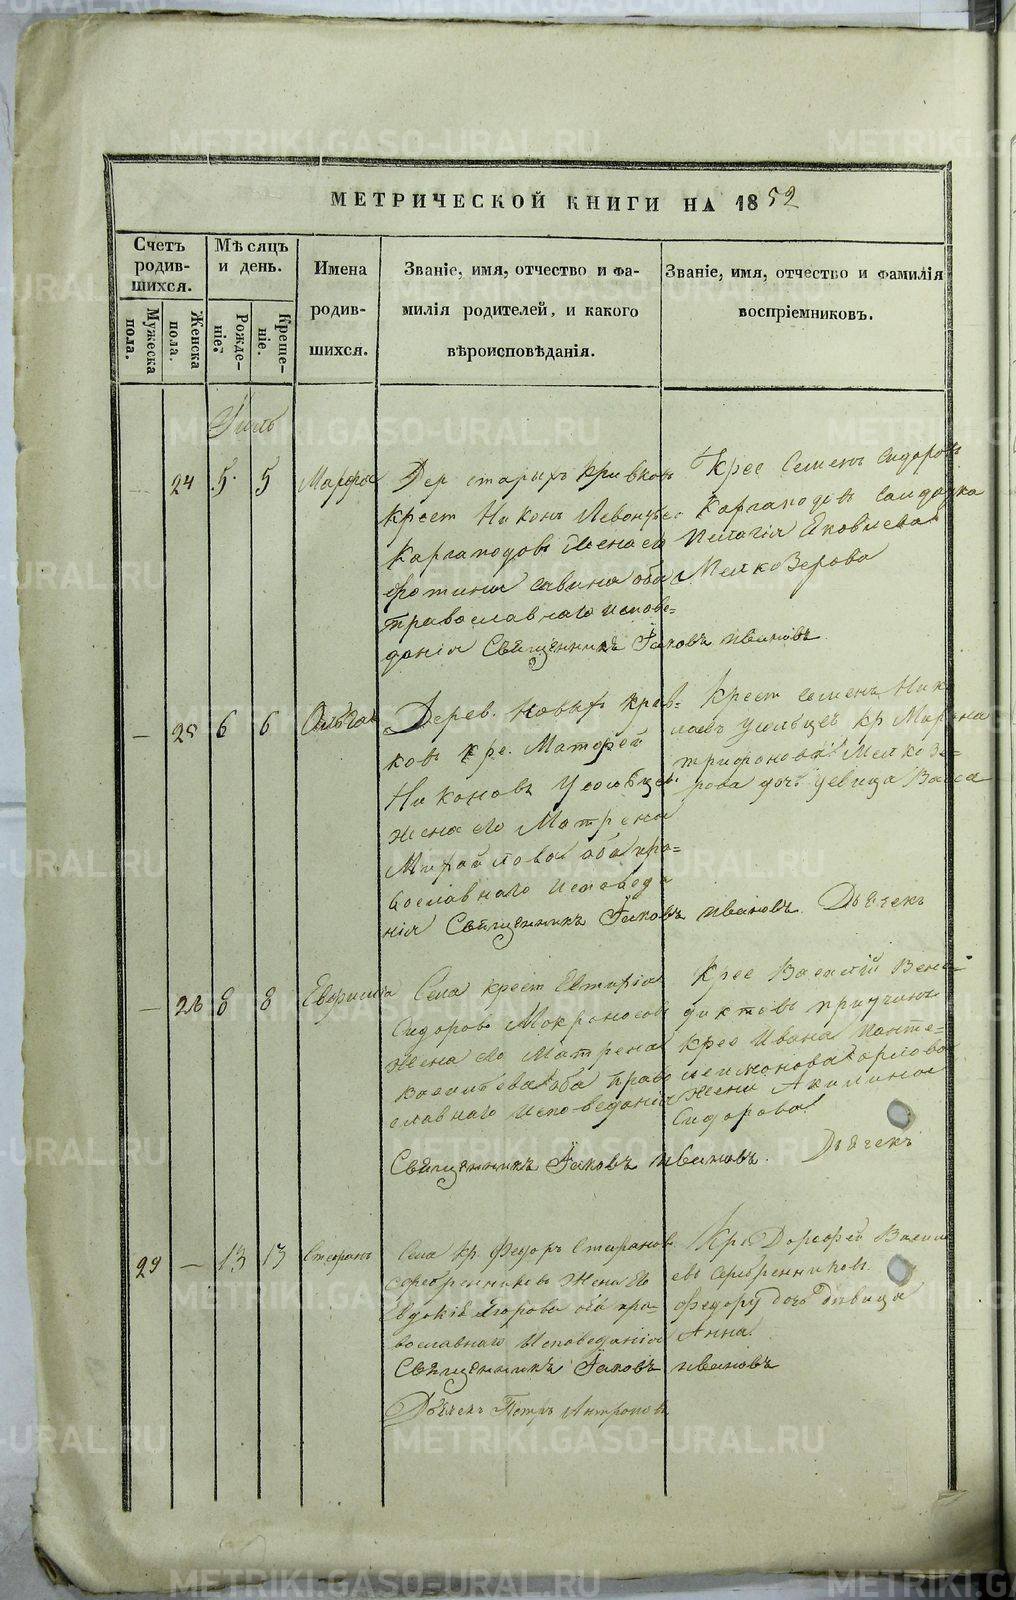 МЕТРИЧЕСКОЙ КНИГИ НА 1852
Счетъ родив-шихся.
Мужеска пола.
Женска пола.
Мѣсяцъ и день.
Рожде-ніе.
Креще-ніе.
Имена
родив-
шихся.
Званіе, имя, отчество и фа-
милія родителей, и какого
вѣроисповѣданія.
Званіе, имя, отчество и фамилія
воспріемниковъ.
Іюль
— 24 5 5 Марфа
Дер старыхъ Кривковъ
Крест Никонъ Левонтьев
Каргаподовъ жена ево
Фотиния Савина оба
православнаго испове-
данія Священникъ Іаковъ Ивановъ
Крес Семенъ Сидоровъ
Каргаподовъ солдатка
Пелагія Яковлева
Мелкозерова
— 25 6 6 Ольга
Дерев. Новыхъ Крив-
ковъ кре. Матфей
Никоновъ Усольцев
жена его Матрена
Михайлова оба пра-
вославнаго исповеда
нія Священникъ Іаковъ Ивановъ. Дьячекъ
Крест Семенъ Нико
лаевъ Усольцев, кр Марка
Трифонова Мелкозе-
рова дочь девица Васса
— 26 8 8 Евфимія
Села крест Евтифія
Сидорова Мокроносовъ
жена его Матрена
Васильева оба право
славнаго исповеданія
Священникъ Іаковъ Ивановъ. Дьячекъ
Крес Василій Вене-
диктовъ
крес Ивана Панте-
леимонова Орлова
жена Акилина
Сидорова
29 — 13 13 Стефанъ
Села кр. Федоръ Стефановъ
Серебренниковъ жена ево
Евдокія Егорова оба пра-
вославнаго исповеданія
Священникъ Іаковъ Ивановъ
Дьячекъ Петръ Антроповъ
Кре Дорофей Василь
евъ Серебренниковъ.
Федору дочь дѣвица
Анна.
METRIKI.GASO-URAL.RU